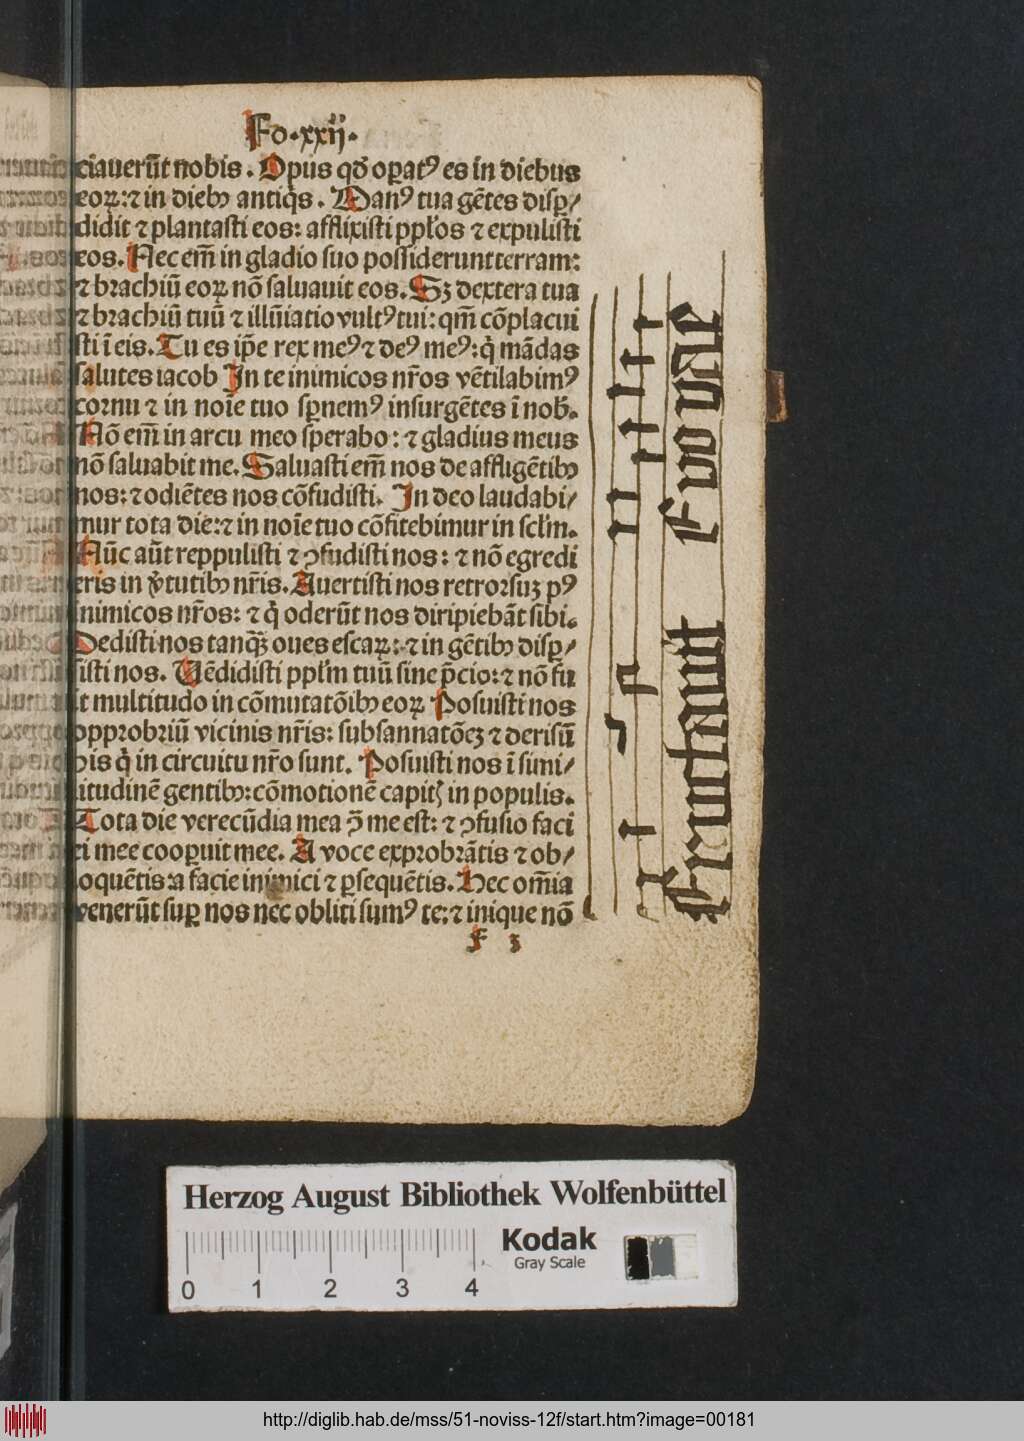 Fo·xxij·
ciauerūt nobis. Opus qð oꝑatꝰ es in diebus
eoꝝ: ⁊ in diebꝫ antiq̇s. Manꝰ tua gētes disꝑ/
didit ⁊ plantasti eos: afflixisti ppl̄os ⁊ expulisti
eos. Nec em̄ in gladio suo possiderunt terram:
⁊ brachiū eoꝝ nō saluauit eos. Sꝫ dextera tua
⁊ brachiū tuū ⁊ illūiatio vultꝰ tui: qm̄ cōplacui
sti ī eis. Tu es ip̄e rex meꝰ ⁊ deꝰ meꝰ: q̇ mādas
salutes iacob In te inimicos nr̄os vētilabimꝰ
cornu ⁊ in noīe tuo sꝑnemꝰ insurgētes ī nob̄.
Nō em̄ in arcu meo sperabo: ⁊ gladius meus
nō saluabit me. Saluasti em̄ nos de affligētibꝫ
nos: ⁊ odiētes nos cōfudisti. In deo laudabi/
mur tota die: ⁊ in noīe tuo cōfitebimur in scl̄m.
Nūc aūt reppulisti ⁊ ꝯfudisti nos: ⁊ nō egredi
eris in v̇tutibꝫ nr̄is. Auertisti nos retrorsuꝫ pꝰ
inimicos nr̄os: ⁊ q̇ oderūt nos diripiebāt sibi.
Dedisti nos tanqꝫ̄ oues escaꝝ: ⁊ in gētibꝫ disꝑ/
sisti nos. Uēdidisti ppl̄m tuū sine p̄cio: ⁊ nō fu
it multitudo in cōmutatōibꝫ eoꝝ Posuisti nos
opprobriū vicinis nr̄is: subsannatōeꝫ ⁊ derisū
his q̇ in circuitu nr̄o sunt. Posuisti nos ī simi/
litudinē gentibꝫ: cōmotionē capitꝭ in populis.
Tota die verecūdia mea ꝯ̄ me est: ⁊ ꝯfusio faci
ei mee cooꝑuit mee. A voce exprobrātis ⁊ ob/
loquētis: a facie inimici ⁊ ꝑsequētis. Hec om̄ia
venerūt suꝑ nos nec obliti sumꝰ te: ⁊ inique nō
F 3
Eructauit Euouae
Herzog August Bibliothek Wolfenbüttel
Kodak
Gray Scale
0 1 2 3 4
http://diglib.hab.de/mss/51-noviss-12f/start.htm?image=00181